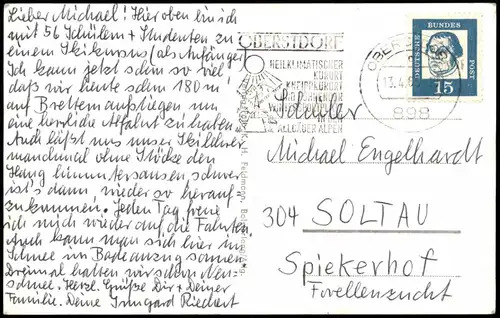 Lieber Michael! Hier oben bin ich
mit 56 Schülern + Studenten zu
einem Skikursus (als Anfänger)
Ich kann jetzt schon so viel
daß wir heute schon 180 m
auf Brettern aufstiegen um
eine herrliche Abfahrt zu haben.
Auch läßt uns unser Skilehrer
manchmal ohne Stöcke den
Hang hinuntersausen, schwer
ist's dann wieder so herauf-
zukommen. Jeden Tag freue
ich mich wieder auf die Fahrten.
Auch kann man sich hier im
Schnee im Badeanzug sonnen
Dreimal hatten wir schon Neu-
schnee. Herzl. Grüße Dir + Deiner
Familie. Deine Irmgard Riechert
OBERSTDORF
HEILKLIMATISCHER
KURORT
KNEIPPKURORT
ALLGÄUER ALPEN
DEUTSCHE
BUNDES
POST
15
13.4.
898
Schüler
Michael Engelhardt
304 SOLTAU
Spiekerhof
Forellenzucht